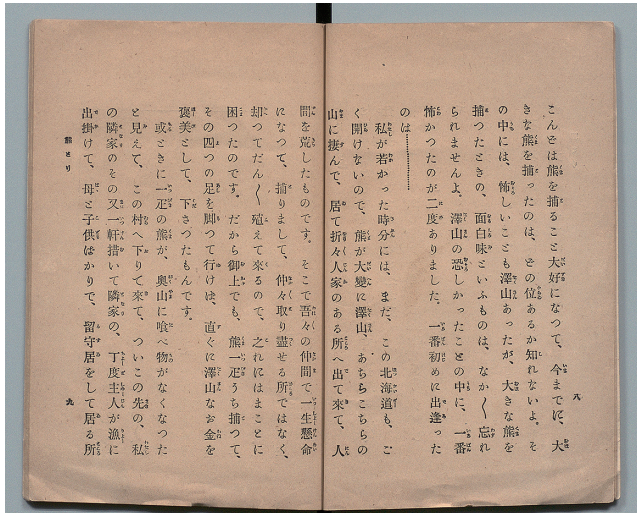 こんどは熊を捕ること大好になつて、今までに、大
きな熊を捕つたのは、どの位あるか知れないよ。そ
の中には、怖しいことも澤山あつたが、大きな熊を
捕つたときの、面白味といふものは、なか〳〵忘れ
られませんよ。澤山の恐しかつたことの中に、一番
怖かつたのが二度ありました。一番初めに出逢つた
のは…………
私が若かつた時分には、まだ、この北海道も、ご
く開けないので、熊が大變に澤山、あちらこちらの
山に棲んで、居て折々人家のある所へ出て來て、人
八
間を荒したものです。そこで吾々の仲間で一生懸命
になつて、捕りまして、仲々取り盡せる所ではなく、
却つてだん〳〵殖えて來るので、之れにはまことに
困つたのです。だから御上でも、熊一疋うち捕つて、
その四つの足を脚つて行けば、直ぐに澤山なお金を
褒美として、下さつたもんです。
或ときに一疋の熊が、奥山に喰べ物がなくなつた
と見えて、この村へ下りて來て、ついこの先の、私
の隣家のその又一軒措いて隣家の、丁度主人が漁に
出掛けて、母と子供ばかりで、留守居をして居る所
熊とり
九